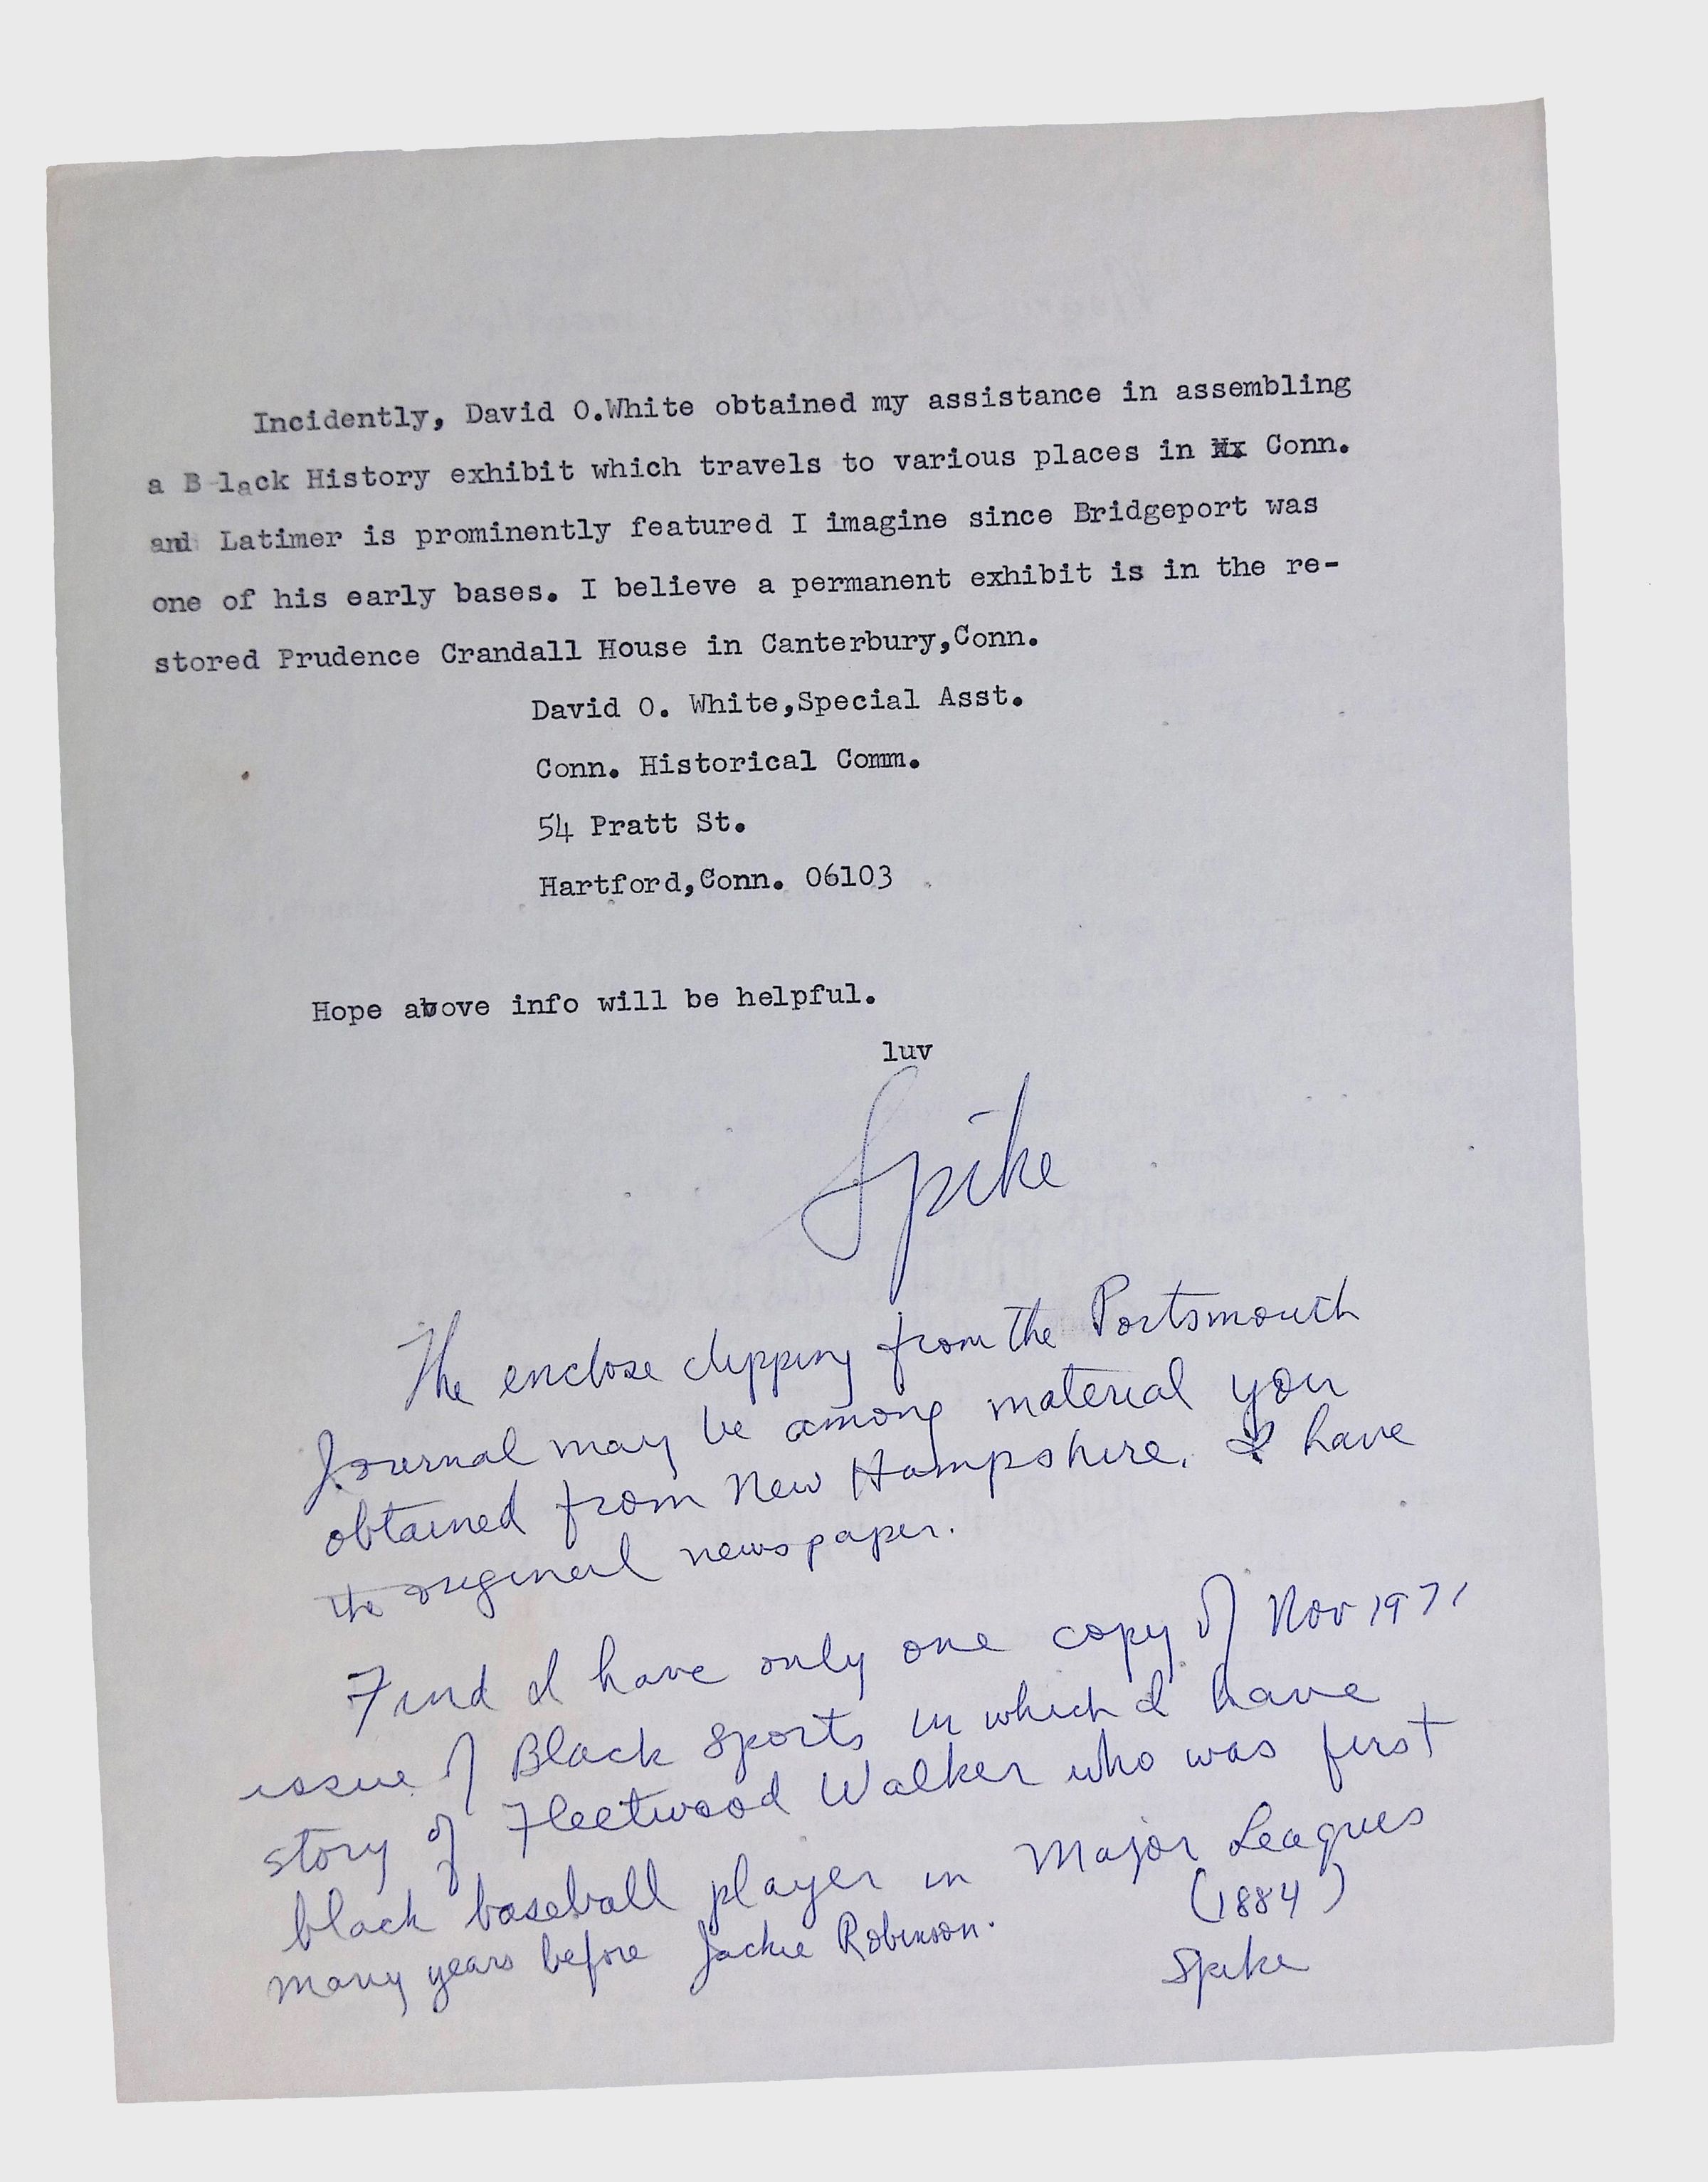 Incidently, David O.White obtained my assistance in assembling
a B lack History exhibit which travels to various places in Conn.
and Latimer is prominently featured I imagine since Bridgeport was
one of his early bases. I believe a permanent exhibit is in the re-
stored Prudence Crandall House in Canterbury,Conn.
David O. White,Special Asst.
Conn. Historical Comm.
54 Pratt St.
Hartford,Conn. 06103
Hope above info will be helpful.
luv
Spike
The enclose clipping from the Portsmouth
Journal may be among material you
obtained from New Hampshire. I have
the original newspaper.
Find I have only one copy of Nov 1971
issue of Black Sports in which I have
story of Fleetwood Walker who was first
black baseball player in Major Leagues
(1884)
many years before Jackie Robinson.
Spike